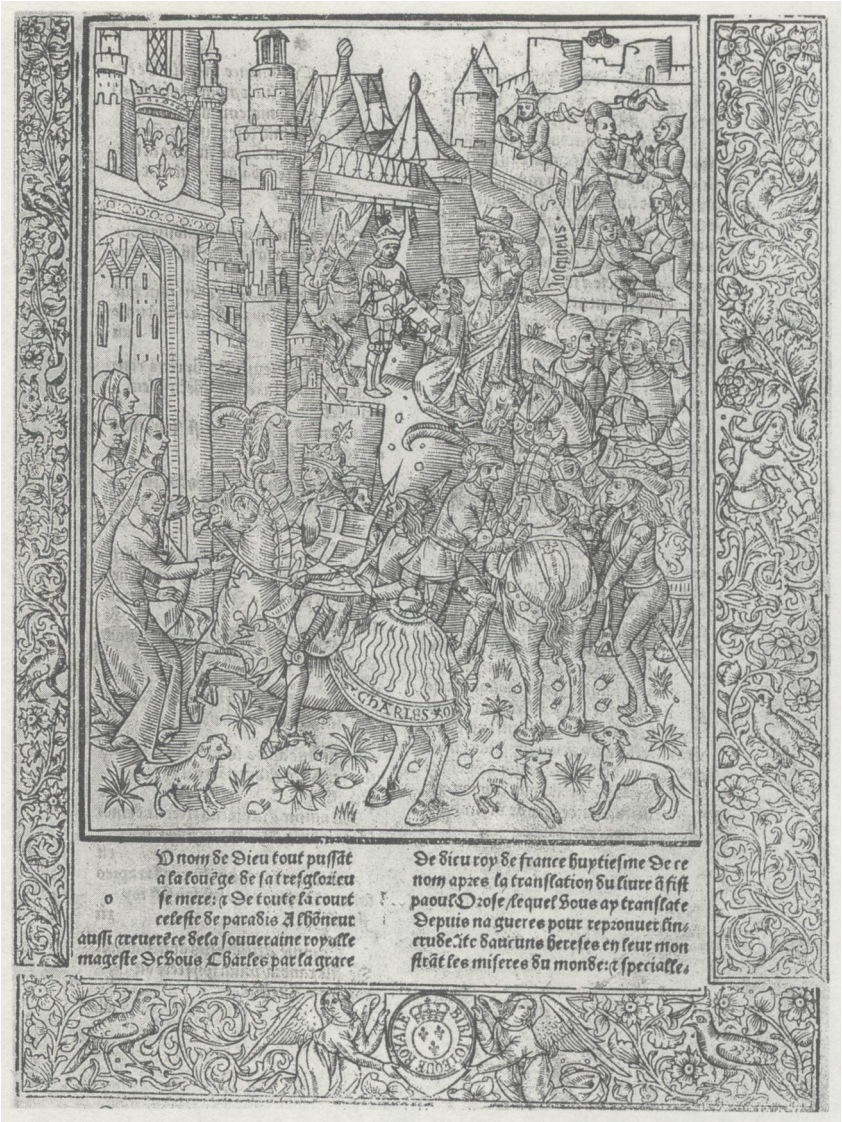 Josephus . S
CHARLES
U nom de Dieu tout pussãt
a la louẽge de sa tresglorieu
se mere: ⁊ de toute la court
o
celeste de paradis A lhõneur
aussi ⁊ reuerẽce dela souueraine royalle
mageste De vous Charles par la grace
De dieu roy de france huytiesme De ce
nom apres la translation du liure q̃ fist
paoul Orose / lequel vous ay translate
Depuis na gueres pour reprouuer lin⸗
crude.itẽ daucuns hereses en leur mon
strãt les miseres du monde: ⁊ specialle⸗
BIBLIOTEQUE ROYALE